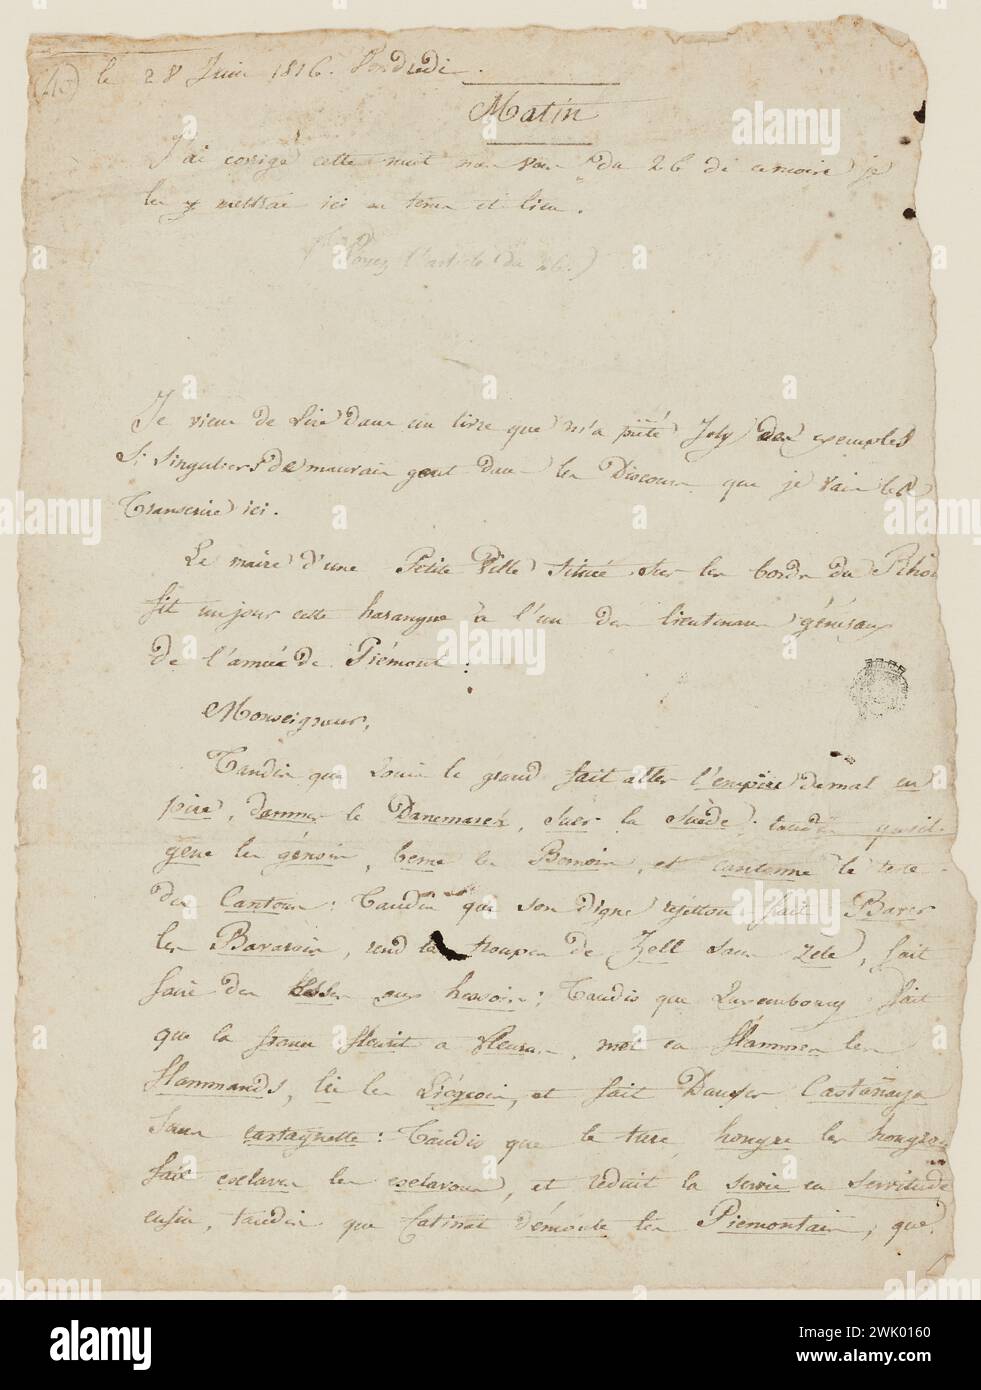 (40) le 28 Juin 1816. Vendredi.
Matin
J'ai corrigé cette nuit mon du 26 de je
les y mettrai ici en tems et lieu.
(Voyez l'article du 26.)
Je viens de lire dans un livre que m'a prêté Joly des exemples
si singuliers de mauvais gout dans les Discours que je vais les
transcrire ici.
Le maire d'une Petite Ville située sur les bords du Rhône
fit un jour cette harangue à l'un des lieutenans généraux
de l'armée de Piémont :
Monseigneur,
Tandis que Louis le grand fait aller l'empire de mal en
pire, damner le Danemarck, suer la Suède; tandis qu'il
gene les génois, berne les Bernois, et cantonne le reste
des Cantons : Tandis que son digne rejetton fait Baver
les Bavarois, rend les troupes de Zell sans zele, fait
faire des hesses aux hessois; Tandis que Luxembourg fait
que la france fleurit a fleurus, met en flammes les
flammands, lie les Liégeois, et fait Danser Castañaga
sans castagnette : Tandis que le turc hongre les hongrois
fait esclaves les esclavons, et reduit la servie en servitude
enfin, tandis que Catinat démonte les Piemontais; que
alamy
alamy
Image ID: 2WK0160
www.alamy.com